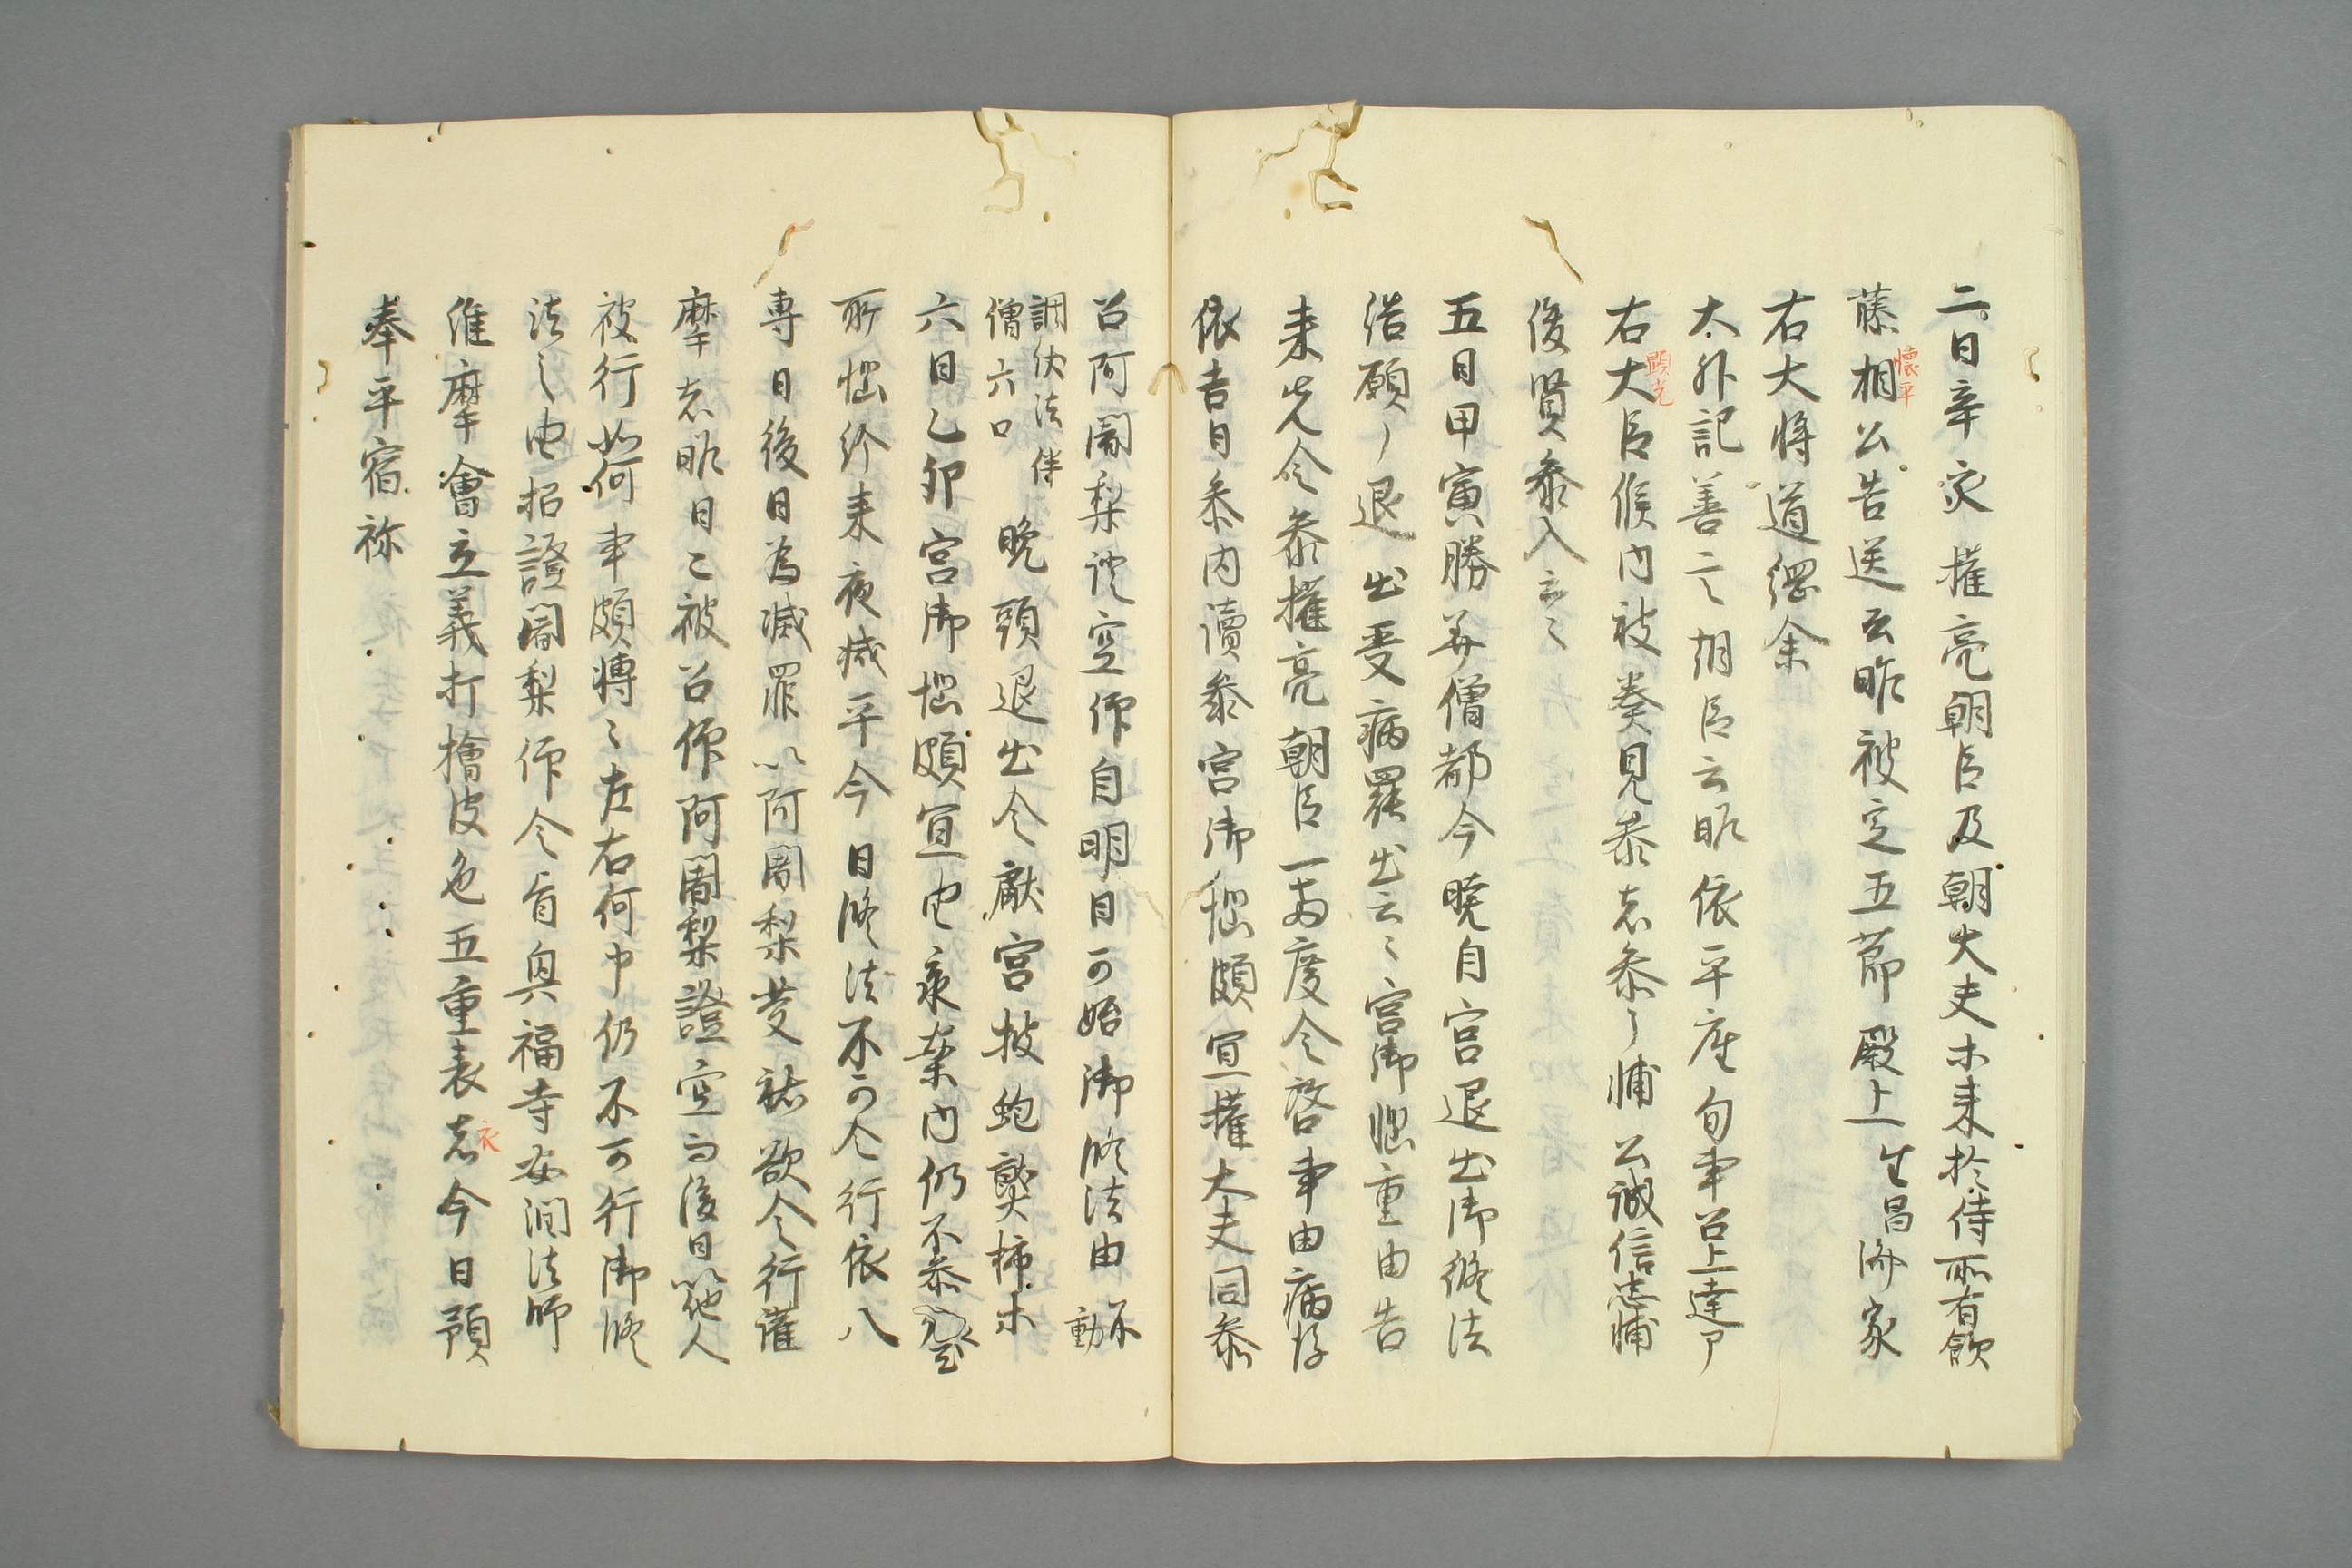 二日辛亥権亮朝臣及朝大夫ホ来於侍所有飲
藤相公告送云昨被定五節殿上生昌済家
懐平
右大将道綱余
大外記善言朝臣云昨依平座旬事召上達了
右大臣候内被奏見参者参了輔公誠信忠輔
顕光
俊賢参入云々
五日甲寅勝算僧都今暁自宮退出御修法
結願了退出受病罷出云々宮御悩重由告
来先令参権亮朝臣一両度令啓事由病
依吉日参内讀参宮御悩頗宜権大夫同参
召阿闍梨證空仰自明日可始御修法由不動
調伏法伴
僧六口
晩頭退出令獻宮披鮑熨柿ホ
六日乙卯宮御悩頗宜由承案内仍不参
所悩従来夜減平今日修法不可令行依八
専日後日為滅罪以阿闍梨慶祚欲令行薩
摩志昨日已被召仰阿闍梨證空而後日以他人
被行如何事頗轉々左右何中仍不可行御修
法之由招證闍梨仰含旨興福寺安潤法師
維摩會立義打檜皮色五重表志今日預
衣
奉平宿祢